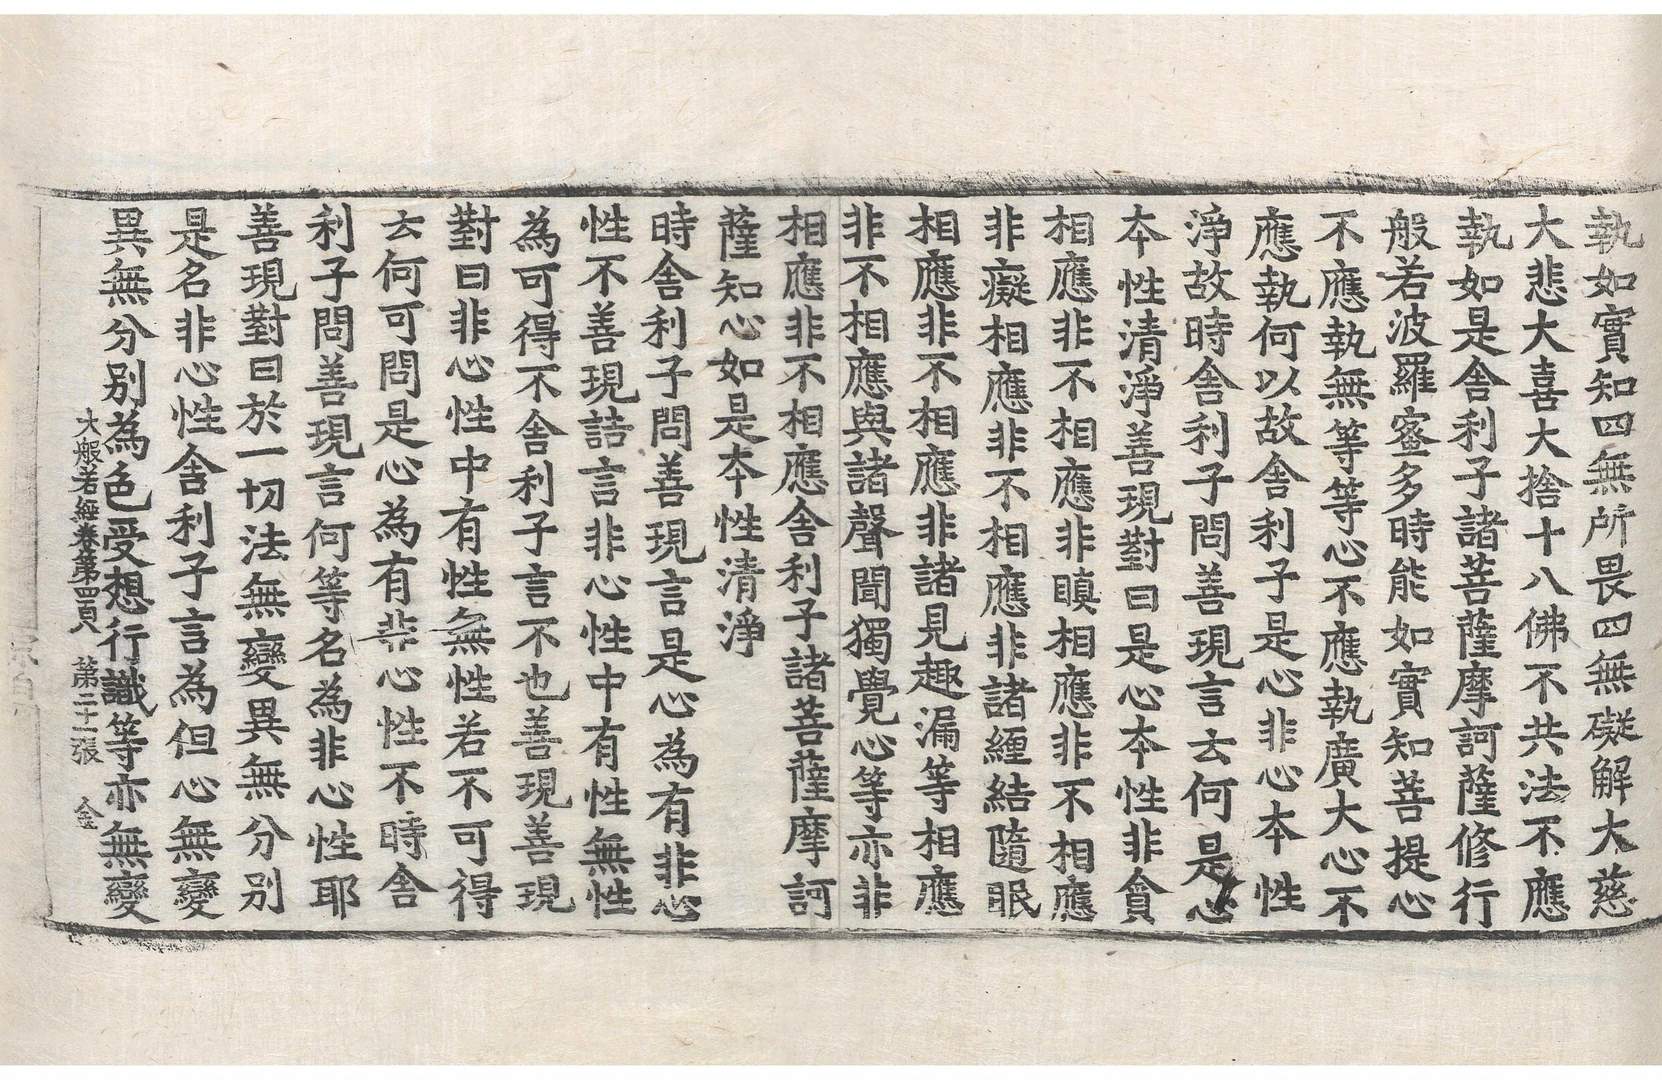 執如實知四無所畏四無礙解大慈
大悲大喜大捨十八佛不共法不應
執如是舍利子諸菩薩摩訶薩修行
般若波羅蜜多時能如實知菩提心
不應執無等等心不應執廣大心不
應執何以故舍利子是心非心本性
淨故時舍利子問善現言云何是心
本性清淨善現對曰是心本性非貪
相應非不相應非瞋相應非不相應
非癡相應非不相應非諸纏結隨眠
相應非不相應非諸見趣漏等相應
非不相應與諸聲聞獨覺心等亦非
相應非不相應舍利子諸菩薩摩訶
薩知心如是本性清淨
時舍利子問善現言是心為有非心
性不善現詰言非心性中有性無性
為可得不舍利子言不也善現善現
對曰非心性中有性無性若不可得
云何可問是心為有非心性不時舍
利子問善現言何等名為非心性耶
善現對曰於一切法無變異無分別
是名非心性舍利子言為但心無變
異無分別為色受想行識等亦無變
大般若經卷第四百 第二十一張 金